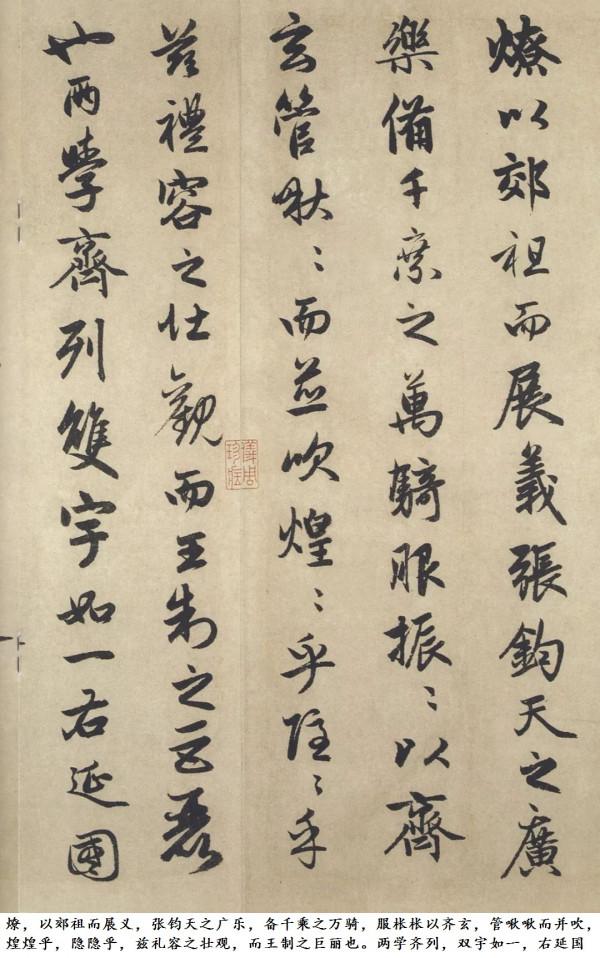 燎以郊祖而展義張鈞天之廣
樂備千乘之萬騎服振〻以齊
玄管啾〻而並吹煌〻乎隱〻乎
茲禮容之壯觀而王制之巨麗
也兩學齊列雙宇如一右延國
儀周珍藏
燎，以郊祖而展义，张钧天之广乐，备千乘之万骑，服枨枨以齐玄，管啾啾而并吹，
煌煌乎，隐隐乎，兹礼容之壮观，而王制之巨丽也。两学齐列，双宇如一，右延国